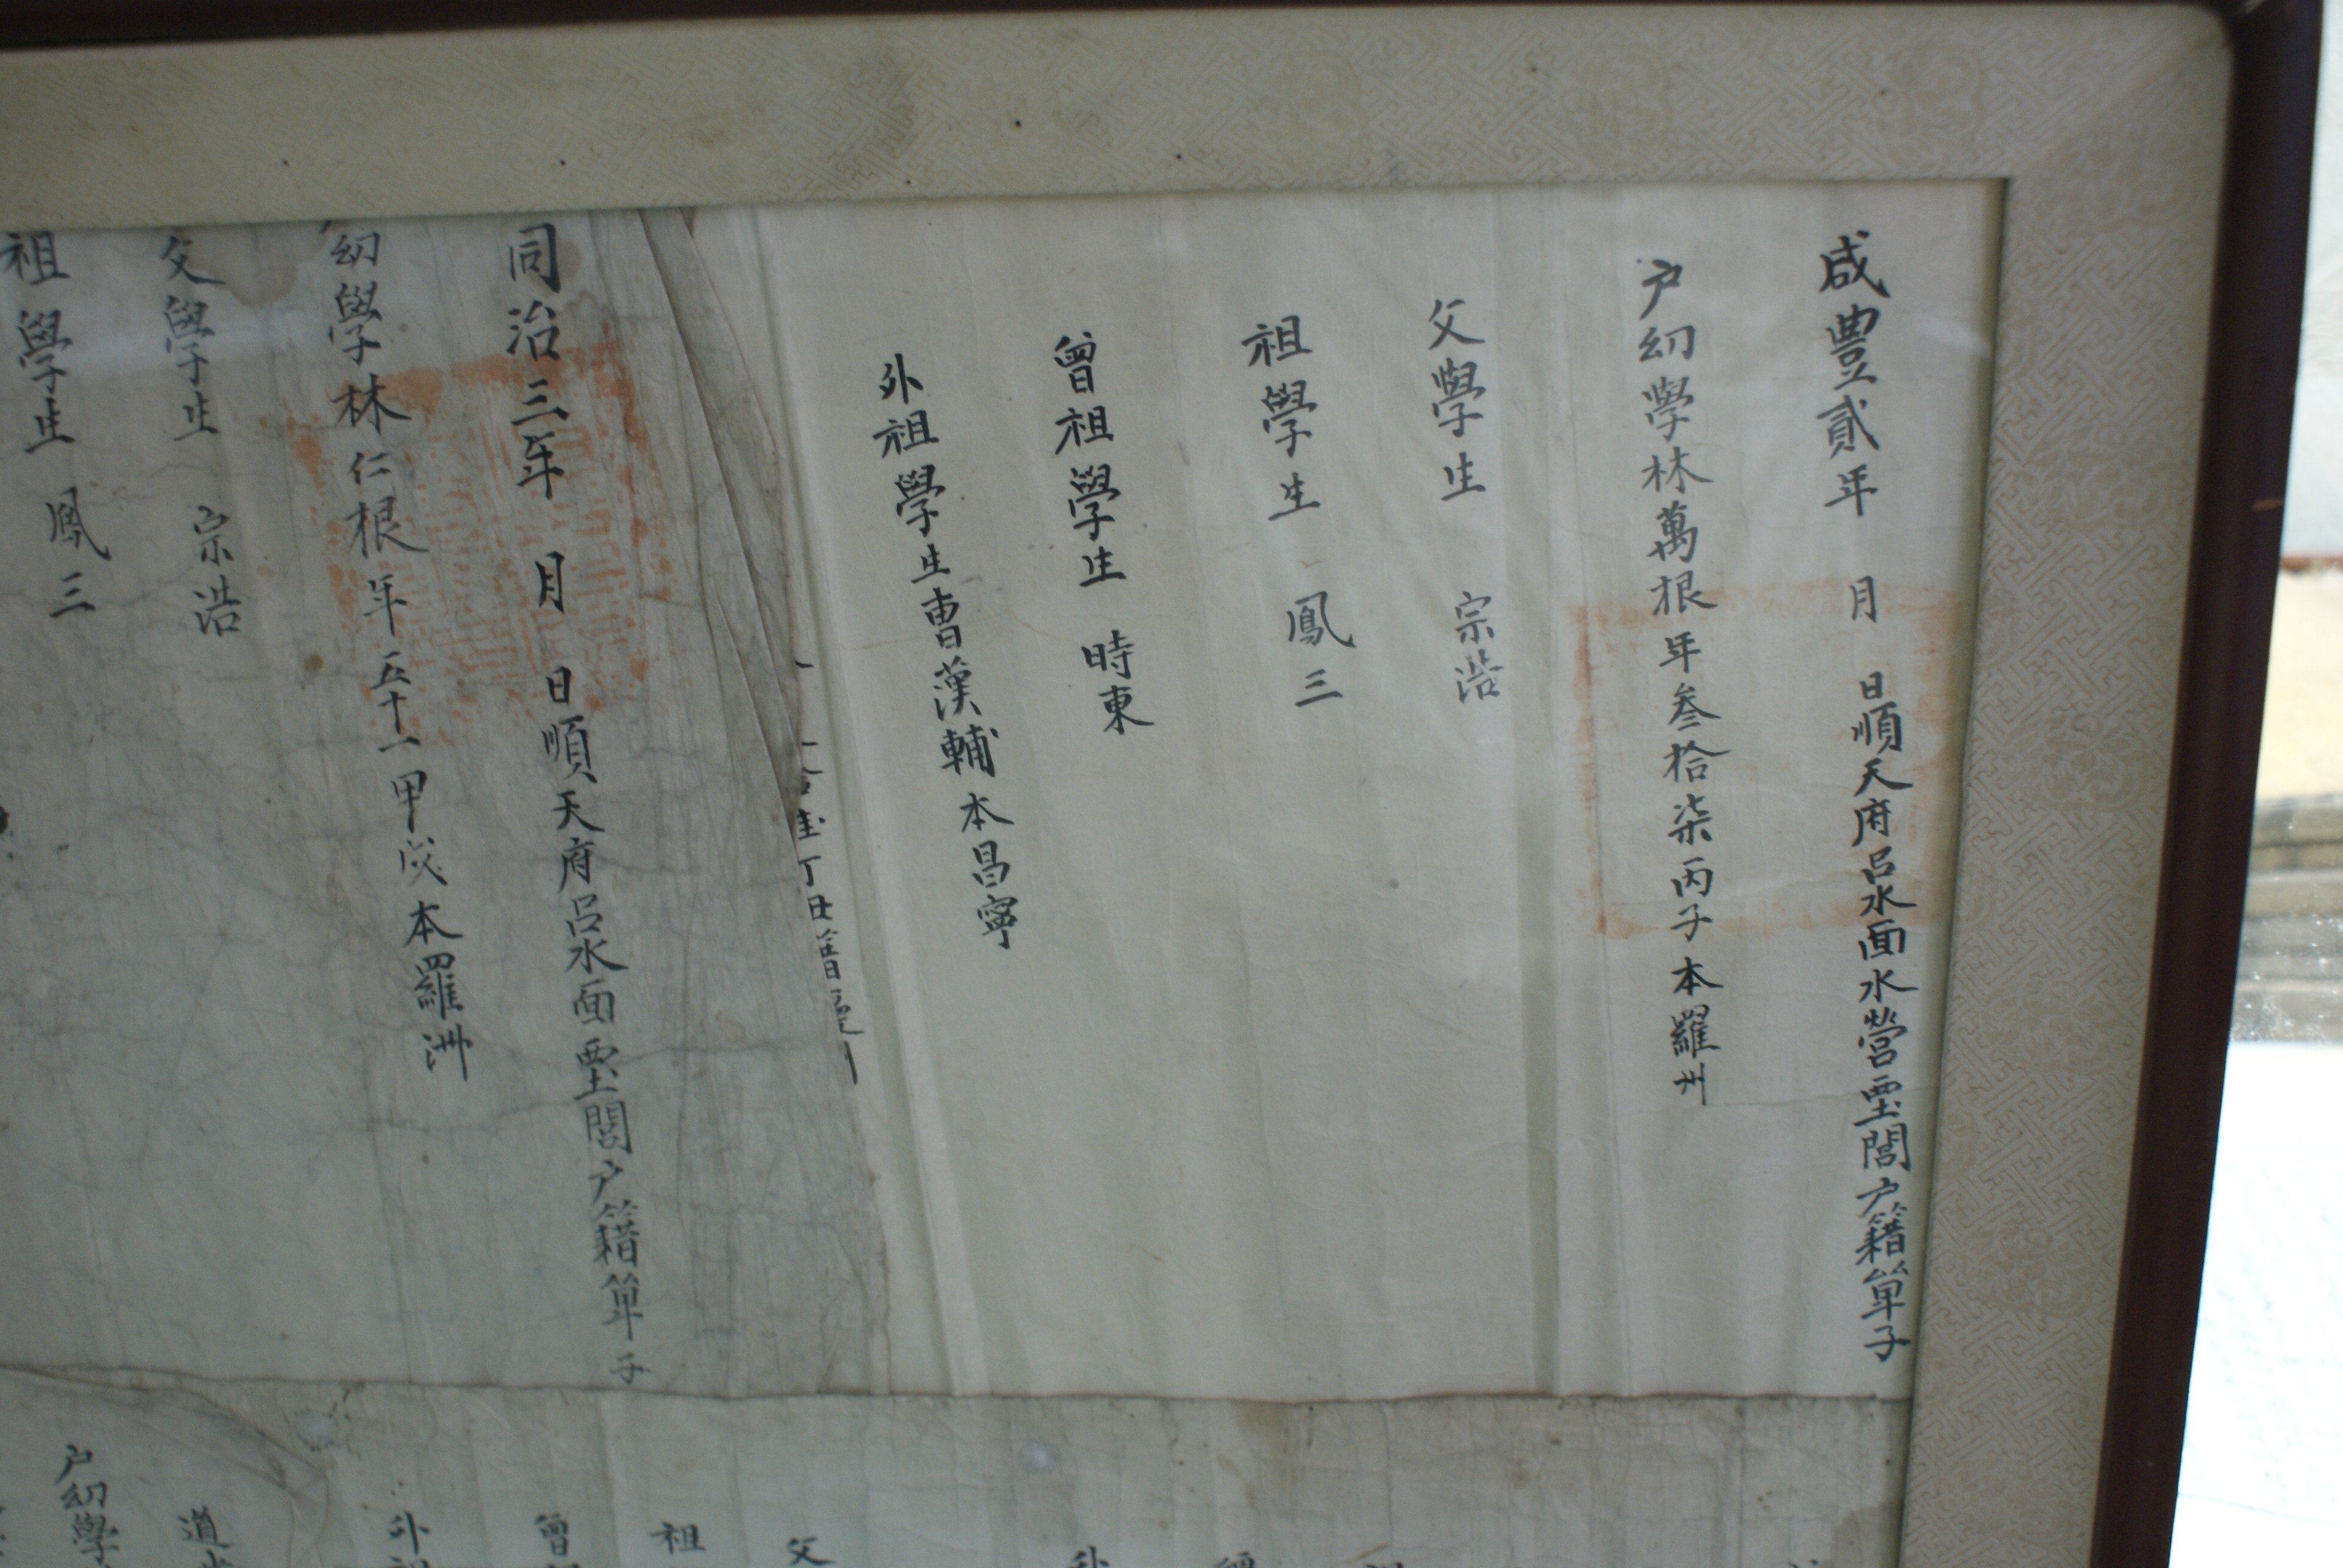 咸豊貳年 月 日順天府呂水面水營里閭戶籍單子
戶幼學林萬根年叁拾柒丙子本羅州
父學生 宗浩
祖學生 鳳三
曾祖學生 時東
外祖學生曺漢輔本昌寧
丁丑籍慶州
同治三年 月 日順天府呂水面里閭户籍單子
幼學林仁根年五十一甲戌本羅洲
父學生 宗浩
祖學生 鳳三
父
祖
曾
外
道
户幼學